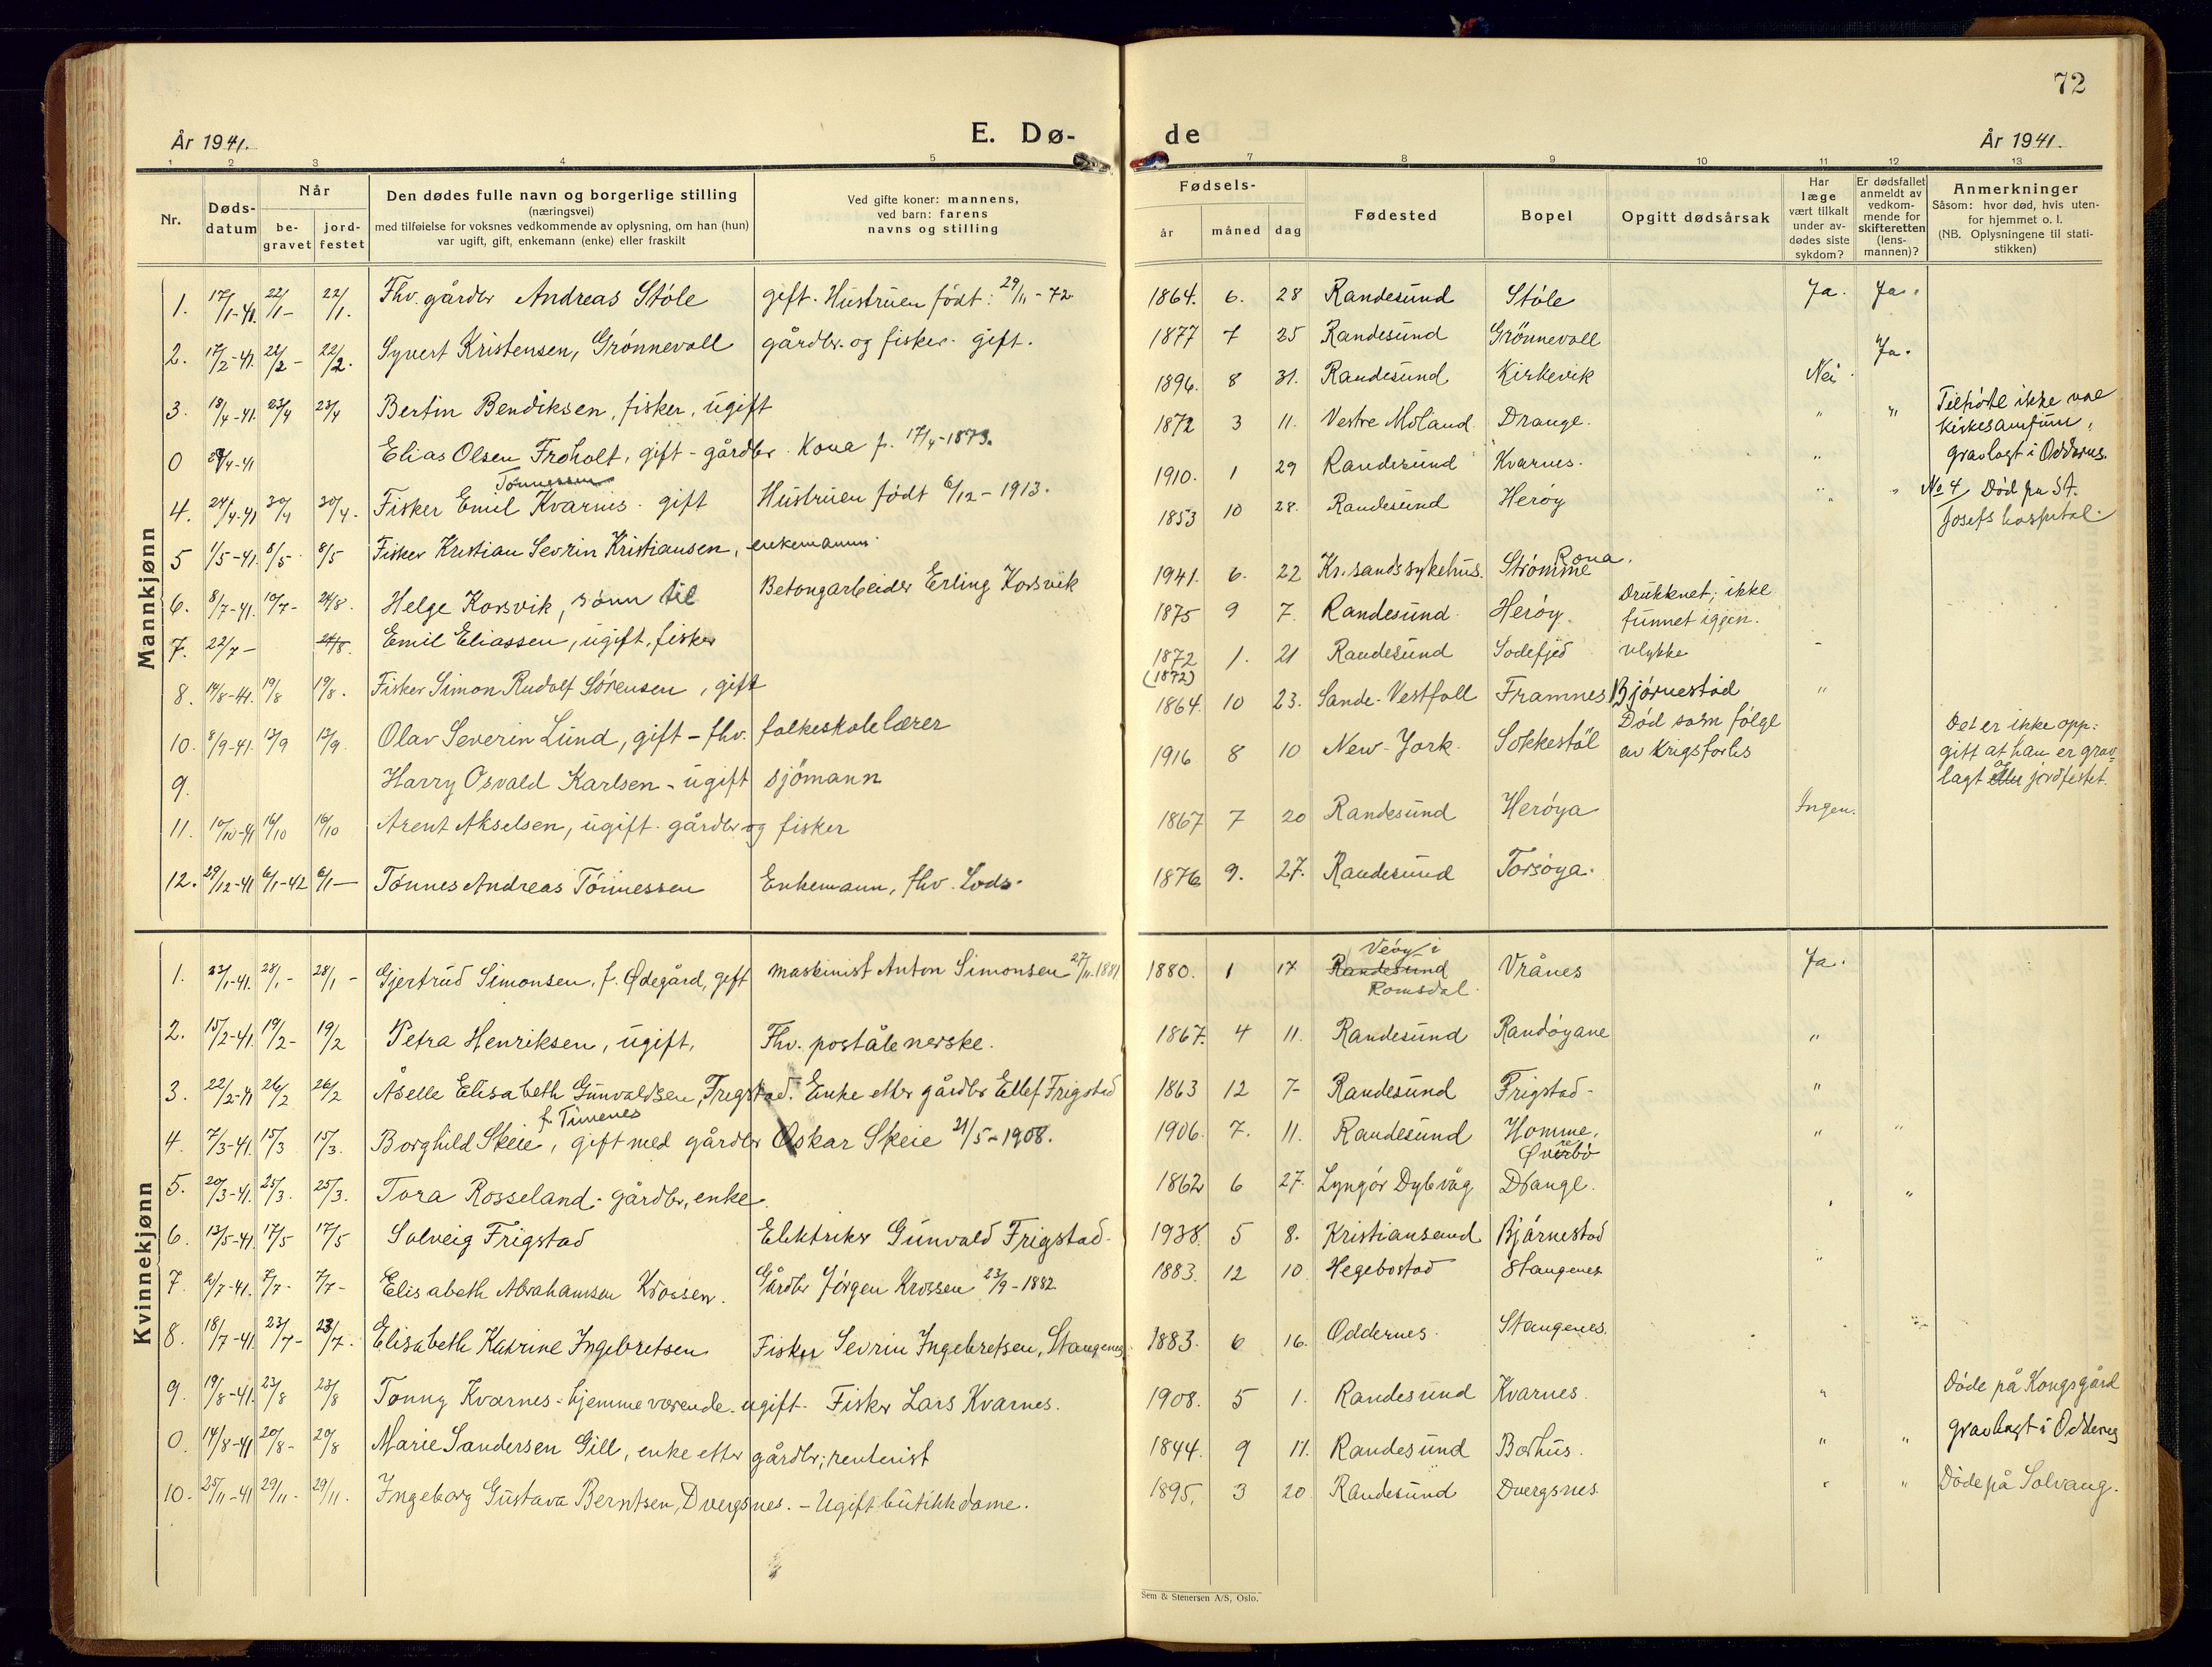 72
År 1941. E. Dø- de År 1941.
1 2 3 4 5 7 8 9 10 11 12 13
Nr. Døds-datum Når be-gravet jord-festet
Den dødes fulle navn og borgerlige stilling
(næringsvei)
med tilføielse for voksnes vedkommende av oplysning, om han (hun)
var ugift, gift, enkemann (enke) eller fraskilt
Ved gifte koner: mannens,
ved barn: farens
navns og stilling
Fødsels-
år måned dag
Fødested Bopel Opgitt dødsårsak
Har læge vært tilkalt under av-dødes siste sykdom?
Er dødsfallet anmeldt av vedkom-mende for skifteretten (lens-mannen)?
Anmerkninger
Såsom: hvor død, hvis uten-
for hjemmet o. l.
(NB. Oplysningene til stati-
stikken)
Mannkjønn
1. 17/1-41. 22/1- 22/1. Fhv. gårdbr Andreas Støle gift. Hustruen født: 29/11-72 1864. 6. 28 Randesund Støle Ja. Ja.
2. 17/2-41. 22/2- 22/2. Syvert Kristensen, Grønnevoll gårdbr. og fisker. gift. 1877 7 25 Randesund Grønnevoll Ja.
3. 18/4-41. 23/4 23/4 Bertin Bendiksen, fisker, ugift 1896. 8 31. Randesund Kirkevik Nei.
0 29/4-41 Elias Olsen Froholt, gift - gårdbr. Kona f. 17/4-1873. 1872 3 11. Vestre Moland. Drange. " " Tilhørte ikke noe
kirkesamfunn,
gravlagt i Oddernes.
Tønnessen
4. 24/4-41 30/4 30/4. Fisker Emil Kvarnes. gift Hustruen født 6/12-1913. 1910. 1 29 Randesund Kvarnes. " No 4 Død på St.
Josefs hospital.
5 1/5-41. 8/5- 8/5 Fisker Kristian Sevrin Kristiansen, enkemann. 1853 10 28. Randesund Herøy " "
6. 8/7-41. 10/7- 24/8. Helge Korsvik, sønn til Betongarbeider Erling Korsvik 1941. 6. 22 Kr.sandssykehus. Strømme Rona.
7. 22/7- 24/8. Emil Eliassen, ugift, fisker 1875 9 7. Randesund. Herøy. Druknet; ikke
funnet igjen.
8. 14/8-41. 19/8 19/8. Fisker Simon Rudolf Sørensen, gift 1872 1. 21 Randesund Sodefjed ulykke
(1872)
10. 8/9-41. 13/9 13/9. Olav Severin Lund, gift - fhv. folkeskolelærer 1864. 10 23. Sande-Vestfoll Framnes Bjørnestad "
9. Harry Osvald Karlsen - ugift sjømann 1916 8 10 New-York. Sokkestøl Død som følge
av krigsforlis Det er ikke opp-
gitt at han er grav-
lagt eller og jordfestet.
11. 10/10-41 16/10 16/10 Arent Akselsen, ugift. gårdbr og fisker 1867 7 20 Randesund Herøya Ingen.
12. 29/12-41 6/1-42 6/1- Tønnes Andreas Tønnessen Enkemann, fhv. Lods. 1876 9. 27. Randesund Torsøya.
Kvinnekjønn
1. 23/1-41. 28/1- 28/1- Gjertrud Simonsen, f. Ødegård, gift maskinist Anton Simonsen 27/11.1881 1880. 1 17 Randesund Veøy i Romsdal. Vrånes Ja.
2. 15/2-41. 19/2- 19/2 Petra Henriksen, ugift, Fhv. poståbnerske. 1867. 4 11. Randesund Randøyane "
3. 22/2-41 26/2 26/2 Åselle Elisabeth Gunvaldsen, Fregstad. Enke etter gårdbr Ellef Frigstad 1863 12 7- Randesund Frigstad- "
f. Timenes
4. 7/3-41. 15/3 15/3. Borghild Skeie, gift med gårdbr Oskar Skeie 21/5-1908. 1906. 7. 11. Randesund Homme, Øvrebø " "
5. 20/3-41. 25/3. 25/3. Tora Rosseland - gårdbr, enke. 1862 6 27. Lyngør Dybvåg Drange. "
6. 13/5-41. 17/5 17/5 Solveig Frigstad Elektriker Gunvald Frigstad- 1938. 5 8. Kristiansand Bjørnestad
7. 2/7-41. 7/7- 7/7- Elisabeth Abrahamsen Krossen. Gårdbr Jørgen Krossen 23/9-1882 1883. 12 10 Hegebostad Stangenes "
8. 18/7-41. 23/7- 23/7. Elisabeth Katrine Ingebretsen Fisker Sevrin Ingebretsen, Stangenes. 1883. 6 16. Oddernes. Stangenes.
9. 19/8-41. 23/8 23/8 Tonny Kvarnes - hjemmeværende. ugift. Fisker Lars Kvarnes. 1908. 5 1. Randesund Kvarnes. " Døde på Kongsgård
0. 14/8-41 20/8- 20/8 Marie Sandersen Gill, enke etter gårdbr; rentenist 1844. 9 11. Randesund Borhus. " " gravlagt i Oddernes
10. 25/11-41 29/11. 29/11. Ingeborg Gustava Berntsen, Dvergsnes. - Ugift butikkdame. 1895. 3 20. Randesund Dvergsnes. " " Døde på Solvang.
Sem & Stenersen A/S, Oslo.